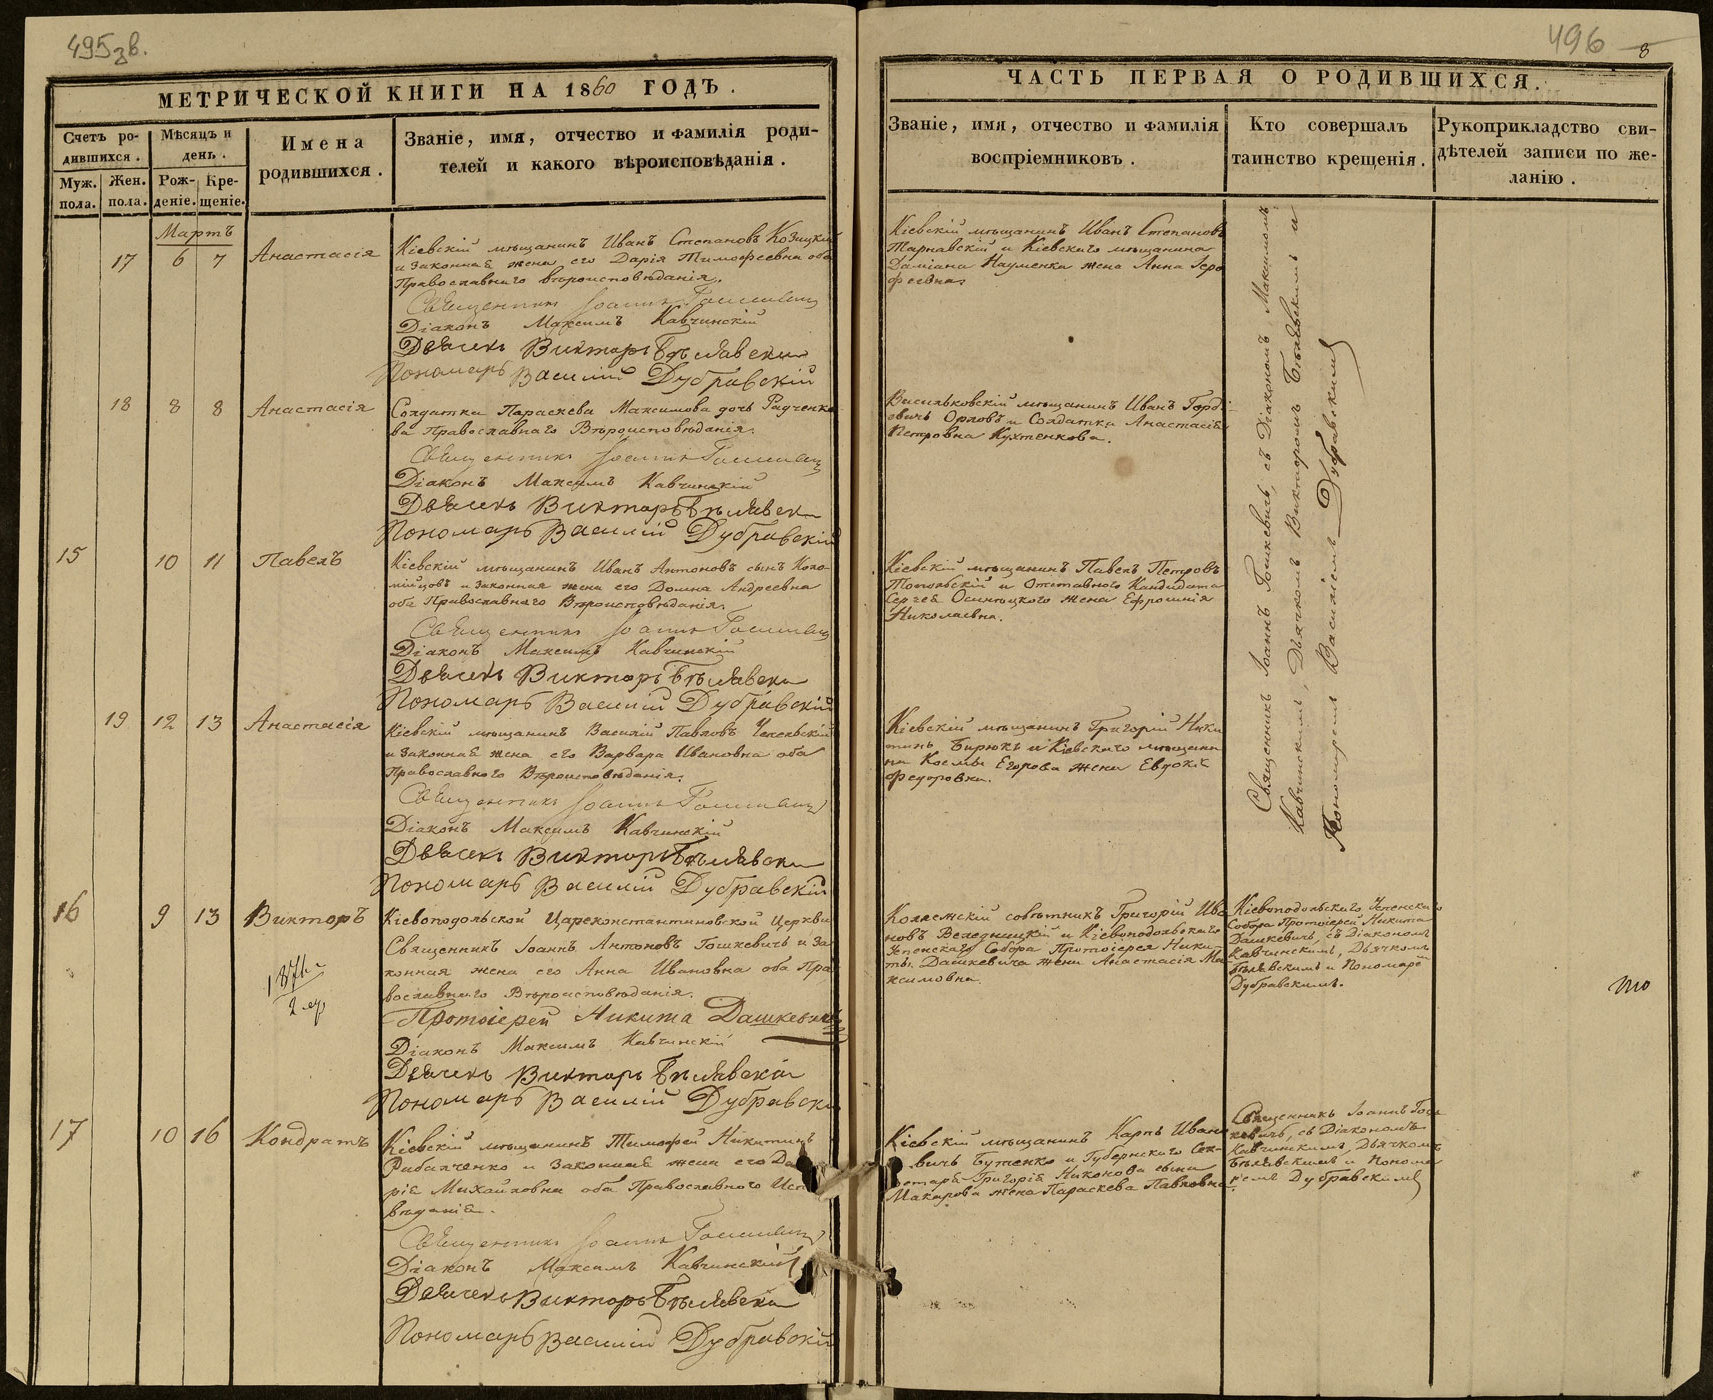 495зв.
МЕТРИЧЕСКОЙ КНИГИ НА 1860 ГОДЪ.
Счетъ ро-
дившихся.
Мѣсяцъ и
день.
Имена
родившихся.
Званіе, имя, отчество и фамилія роди-
телей и какого вѣроисповѣданія.
Муж.
пола.
Жен.
пола.
Рож-
деніе.
Кре-
щеніе.
Мартъ
17 6 7 Анастасія
Кіевскій мѣщанинъ Иванъ Степановъ Козицкій
и законная жена его Дарія Тимофеевна оба
Православнаго вѣроисповѣданія.
Священникъ Іоаннъ Гошкевичъ
Діаконъ Максимъ Кавчинскій
Дьячекъ Викторъ Бѣлявскій
Пономарь Василій Дубравскій
18 8 8 Анастасія
Солдатка Параскева Максимова дочь Радченко-
ва Православнаго Вѣроисповѣданія.
Священникъ Іоаннъ Гошкевичъ
Діаконъ Максимъ Кавчинскій
Дьячекъ Викторъ Бѣлявскій
Пономарь Василій Дубравскій
15 10 11 Павелъ
Кіевскій мѣщанинъ Иванъ Антоновъ сынъ Коло-
мійцовъ и законная жена его Домна Андреевна
оба Православнаго Вѣроисповѣданія.
Священникъ Іоаннъ Гошкевичъ
Діаконъ Максимъ Кавчинскій
Дьячекъ Викторъ Бѣлявскій
Пономарь Василій Дубравскій
19 12 13 Анастасія
Кіевскій мѣщанинъ Василій Павловъ
и законная жена его Варвара Ивановна оба
Православнаго Вѣроисповѣданія.
Священникъ Іоаннъ Гошкевичъ
Діаконъ Максимъ Кавчинскій
Дьячекъ Викторъ Бѣлявскій
Пономарь Василій Дубравскій
16 9 13 Викторъ
Кіевоподольской Цареконстантиновской Церкви
Священникъ Іоаннъ Антоновъ Гошкевичъ и за-
конная жена его Анна Ивановна оба Пра-
вославнаго Вѣроисповѣданія.
Протоіерей Никита Дашкевичъ
Діаконъ Максимъ Кавчинскій
Дьячекъ Викторъ Бѣлявскій
Пономарь Василій Дубравскій
1871
17 10 16 Кондратъ
Кіевскій мѣщанинъ Тимофей Никитинъ
Рибалченко и законная жена его Да-
рія Михайловна оба Православнаго Испо-
вѣданія.
Священникъ Іоаннъ Гошкевичъ
Діаконъ Максимъ Кавчинскій
Дьячекъ Викторъ Бѣлявскій
Пономарь Василій Дубравскій
496
8
ЧАСТЬ ПЕРВАЯ О РОДИВШИХСЯ.
Званіе, имя, отчество и фамилія
воспріемниковъ.
Кто совершалъ
таинство крещенія.
Рукоприкладство сви-
дѣтелей записи по же-
ланію.
Кіевскій мѣщанинъ Иванъ Степановъ
Тарнавскій и Кіевскаго мѣщанина
Даміана Науменка жена Анна Іеро-
феевна.
Васильковскій мѣщанинъ Иванъ Горді-
евичъ Орловъ и Солдатка Анастасія
Петровна Кухтенкова.
Кіевскій мѣщанинъ Павелъ Петровъ
Топольскій и Отставнаго Кандидата
Сергея Осинецкого жена Ефросинія
Николаевна.
Кіевскій мѣщанинъ Григорій Ники-
тинъ Бирюкъ и Кіевскаго мѣщани-
на Косьмы Егорова жена Евдокія
Федоровна.
Священникъ Іоаннъ Гошкевичъ, съ Діакономъ Максимомъ
Кавчинскимъ, Дьячкомъ Викторомъ Бѣлявскимъ и
Пономаремъ Василіемъ Дубравскимъ
Коллежскій совѣтникъ Григорій Ива-
новъ Веледницкій и Кіевоподольскаго
Успенскаго Собора Протоіерея Ники-
ты Дашкевича жена Анастасія Ма-
ксимовна.
Кіевоподольскаго Успенскаго
Собора Протоіерей Никита
Дашкевичъ, съ Діакономъ
Кавчинскимъ, Дьячкомъ
Бѣлявскимъ и Пономарем
Дубравскимъ.
Кіевскій мѣщанинъ Карпъ Ивано-
вичъ Бутенко и Губернскаго Сек-
ретаря Григорія Никонова сына
Макарова жена Параскева Павловна.
Священникъ Іоаннъ Гош-
кевичъ, съ Діакономъ
Кавчинскимъ, Дьячкомъ
Бѣлявскимъ и Понома-
ремъ Дубравскимъ